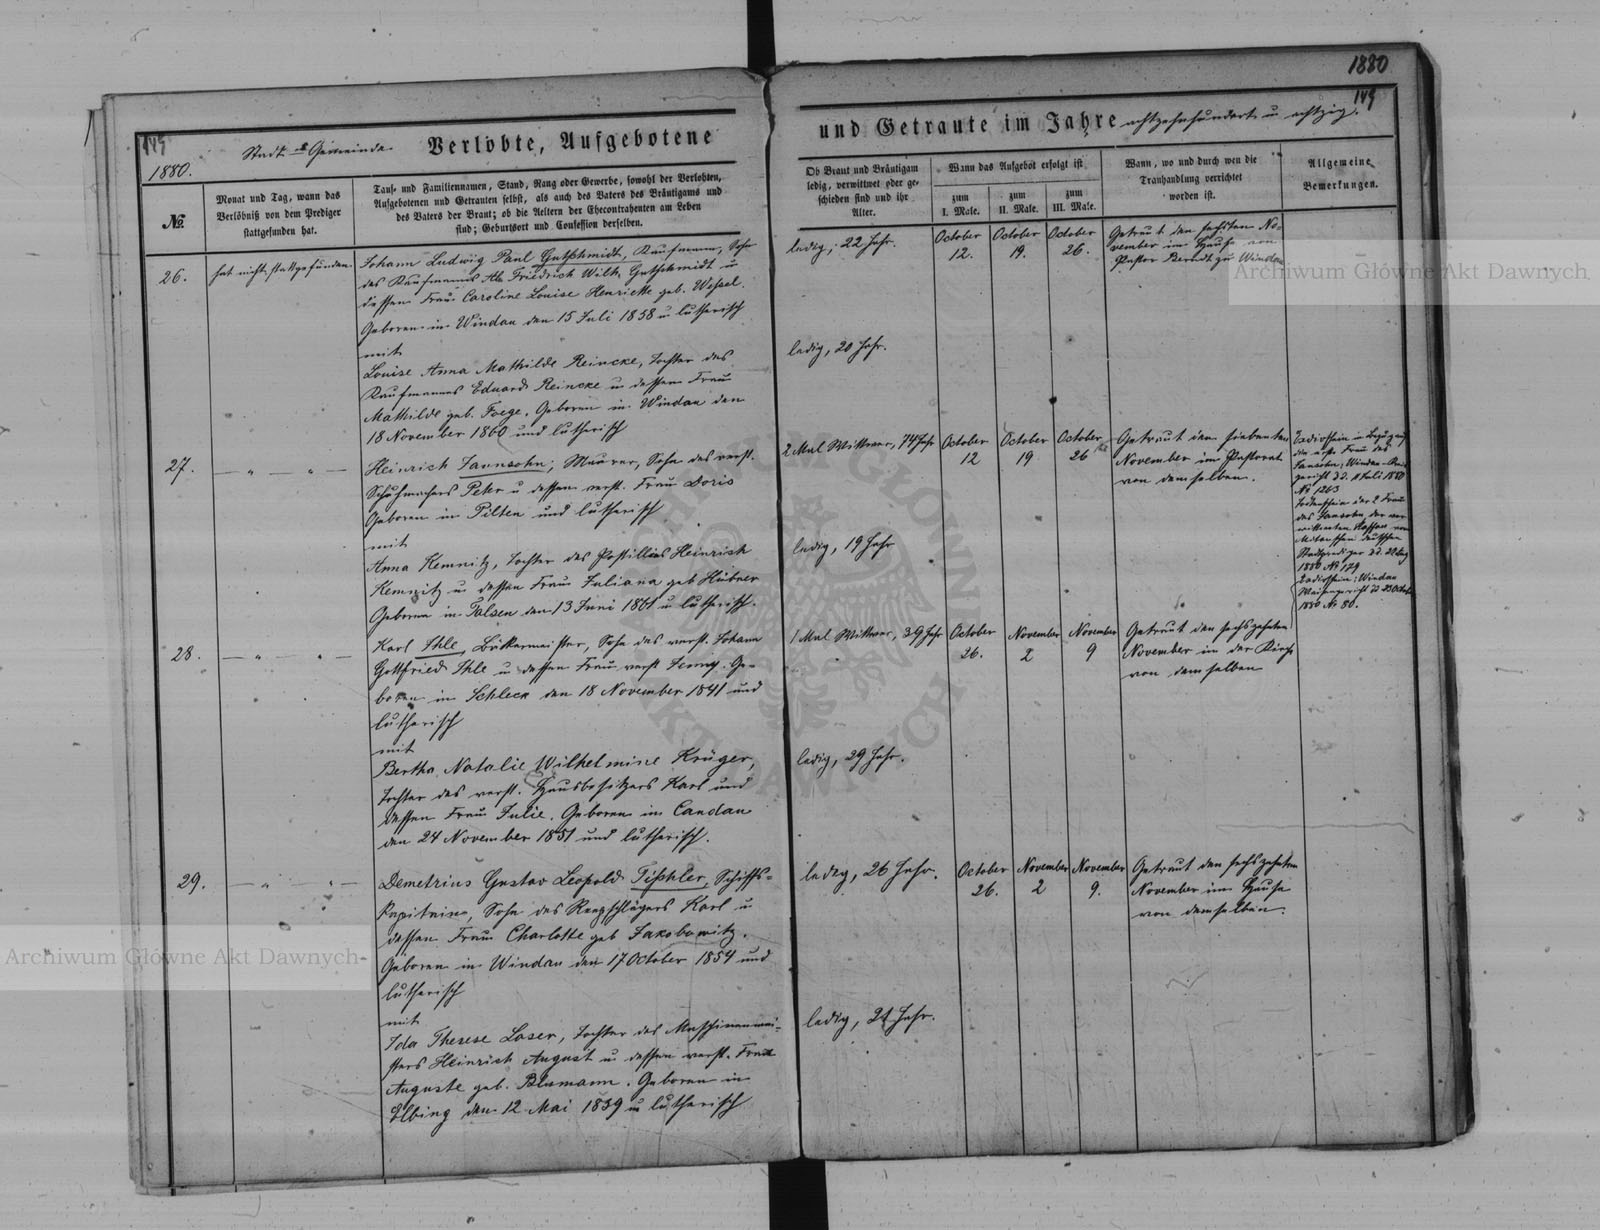 1880
149
149
1880.
Stadt-Gemeinde.
Verlobte, Aufgebotene
und Getraute im Jahre achtzehnhundert u achtzig.
№
Monat und Tag, wann das
Verlöbniß von dem Prediger
stattgefunden hat.
Tauf- und Familiennamen, Stand, Rang oder Gewerbe, sowohl der Verlobten,
Aufgebotenen und Getrauten selbst, als auch des Vaters des Bräutigams und
des Vaters der Braut; ob die Aeltern der Ehecontrahenten am Leben
sind; Geburtsort und Confession derselben.
Ob Braut und Bräutigam
ledig, verwittwet oder ge-
schieden sind und ihr
Alter.
Wann das Aufgebot erfolgt ist
zum
I. Male.
zum
II. Male.
zum
III. Male.
Wann, wo und durch wen die
Trauhandlung verrichtet
worden ist.
Allgemeine
Bemerkungen.
26.
hat nicht stattgefunden
Johann Ludwig Paul Guthschmidt, Kaufmann, Sohn
des Kaufmanns Friedrich Wilh. Guthschmidt u
dessen Frau Caroline Louise Henriette geb. Wessel.
Geboren in Windau den 15 Juli 1858 u lutherisch
mit
Louise Anna Mathilde Reincke, Tochter des
Kaufmannes Eduard Reincke u dessen Frau
Mathilde geb. Foege. Geboren in Windau den
18 November 1860 und lutherisch
ledig, 22 Jahr.
ledig, 20 Jahr.
October
12.
October
19.
October
26.
Getraut den sechsten No-
vember im Hause von
Pastor Berndt zu Windau
27.
— " — " —
Heinrich Jannsohn, Maurer, Sohn des verst.
Schuhmachers Peter u dessen verst. Frau Doris
Geboren in Pilten und lutherisch
mit
Anna Kemnitz, Tochter des Postillions Heinrich
Kemnitz u dessen Frau Juliana geb Hübner
Geboren in Talsen den 13 Juni 1861 u lutherisch.
2 Mal Wittwer, 74 Jahr
ledig, 19 Jahr
October
12
October
19
October
26
Getraut den siebenten
November im Pastorat
von demselben.
№ 1263
des Jansohn, der ver-
1880 № 179
Windau
1880 № 80.
28.
— " — " —
Karl Ihle, Böttchermeister, Sohn des verst. Johann
Gottfried Ihle u dessen Frau verst Jenny. Ge-
boren in Schleck den 18 November 1841 und
lutherisch
mit
Bertha Natalie Wilhelmine Krüger,
Tochter des verst. Hausbesitzers Karl und
dessen Frau Julie. Geboren in Candau
den 24 November 1851 und lutherisch.
1 Mal Wittwer, 39 Jahr
ledig, 29 Jahr.
October
26.
November
2
November
9
Getraut den sechszehnten
November in der Kirche
von demselben
29.
— " — " —
Demetrius Gustav Leopold Tischler, Schiffs-
Kapitain, Sohn des Reepschlägers Karl u
dessen Frau Charlotte geb Jakobowitz.
Geboren in Windau den 17 October 1854 und
lutherisch
mit
Ida Therese Laser, Tochter des Maschinenmei-
sters Heinrich August u dessen verst. Frau
Auguste geb. Blumann. Geboren in
Elbing den 12 Mai 1859 u lutherisch
ledig, 26 Jahr.
ledig, 21 Jahr.
October
26.
November
2
November
9.
Getraut den sechszehnten
November im Hause
von demselben.
Archiwum Główne Akt Dawnych
Archiwum Główne Akt Dawnych
ARCHIWUM GŁÓWNE AKT DAWNYCH